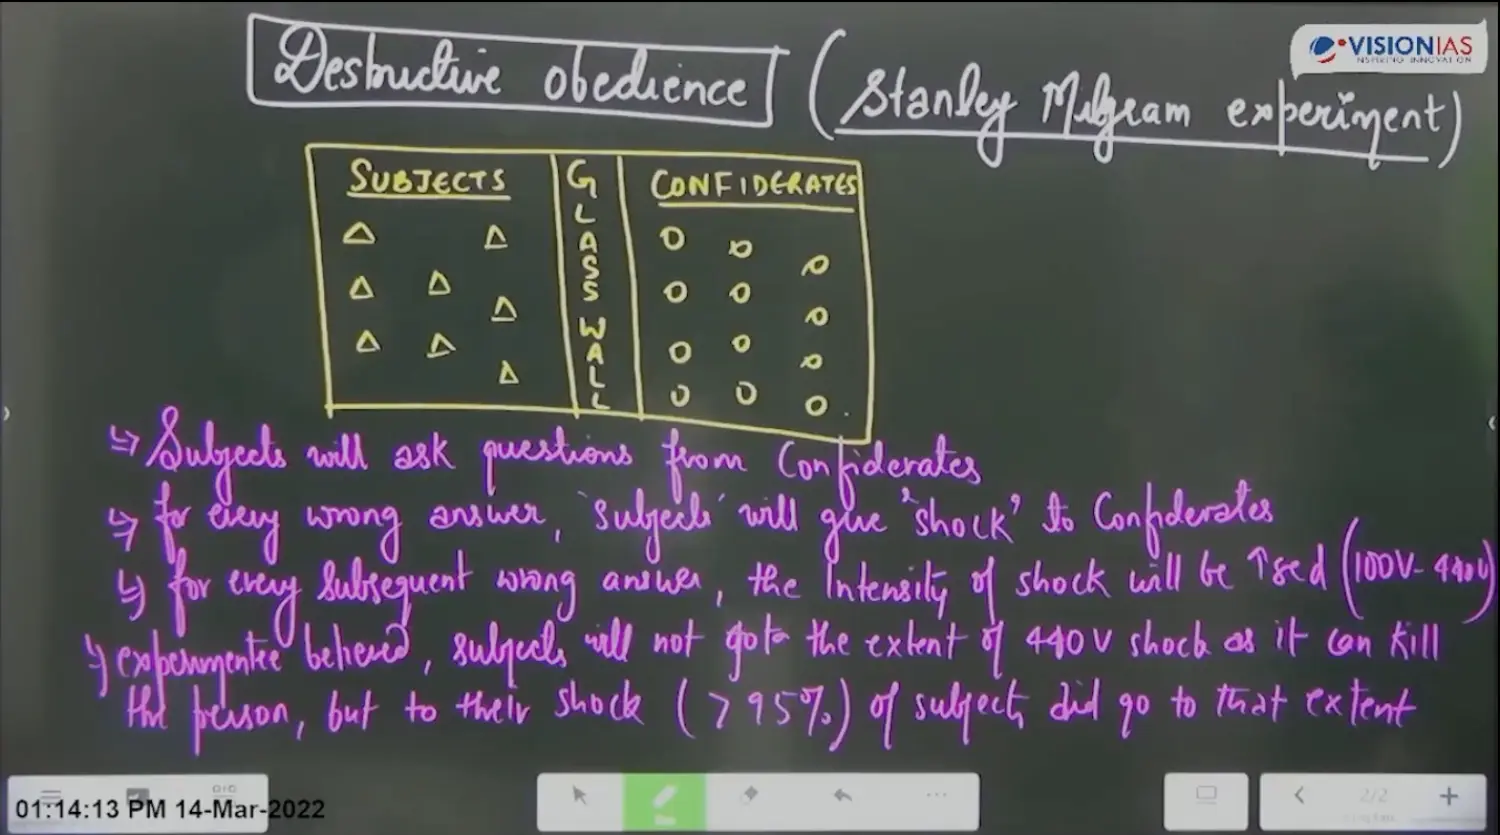 Destructive obedience (Stanley Milgram experiment)
VISIONIAS
INSPIRING INNOVATION
SUBJECTS
GLASS WALL
CONFIDERATES
↳ Subjects will ask questions from Confiderates
↳ for every wrong answer, 'subjects' will give 'shock' to Confiderates
↳ for every subsequent wrong answer, the Intensity of shock will be ↑sed (100V-440V)
↳ experimentee believed, subjects will not goto the extent of 440V shock as it can kill
the person, but to their shock (>95%) of subjects did go to that extent
01:14:13 PM 14-Mar-2022
2/2